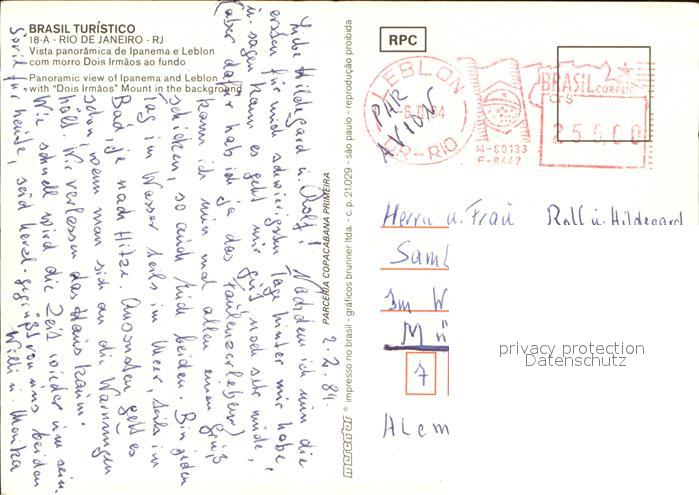 BRASIL TURÍSTICO
18-A - RIO DE JANEIRO - RJ
Vista panorâmica de Ipanema e Leblon
com morro Dois Irmãos ao fundo
Panoramic view of Ipanema and Leblon
with "Dois Irmãos" Mount in the background
2.2.84.
Liebe Hildegard u. Rolf! Nachdem ich nun die
ersten für mich schwierigsten Tage hinter mir habe,
u. sagen kann es geht mir gut, noch sehr müde,
(aber dafür hab ich ja das Faulenzerleben)
kann ich nun mal allen einen Gruß
schicken, so auch Euch beiden. Bin jeden
Tag im Wasser teils im Meer, teils im
Bad, je nach Hitze. Ansonsten geht es
schon, wenn man sich an die Warnungen
hält. Wir verlassen das Haus kaum.
Wie schnell wird die Zeit wieder um sein.
Soviel für heute, seid herzl. gegrüßt von uns beiden
Willi u. Marika
PARCERIA COPACABANA PRIMEIRA
mercator ® impresso no brasil - gráficos brunner ltda. - c. p. 21029 - são paulo - reprodução proibida
RPC
LEBLON
DR-RIO
PAR
AVION
M-C0133
F-8447
BRASIL CORREIO
25500
Herrn u. Frau Rolf u. Hildegard
Im W
7
Alem
privacy protection
Datenschutz